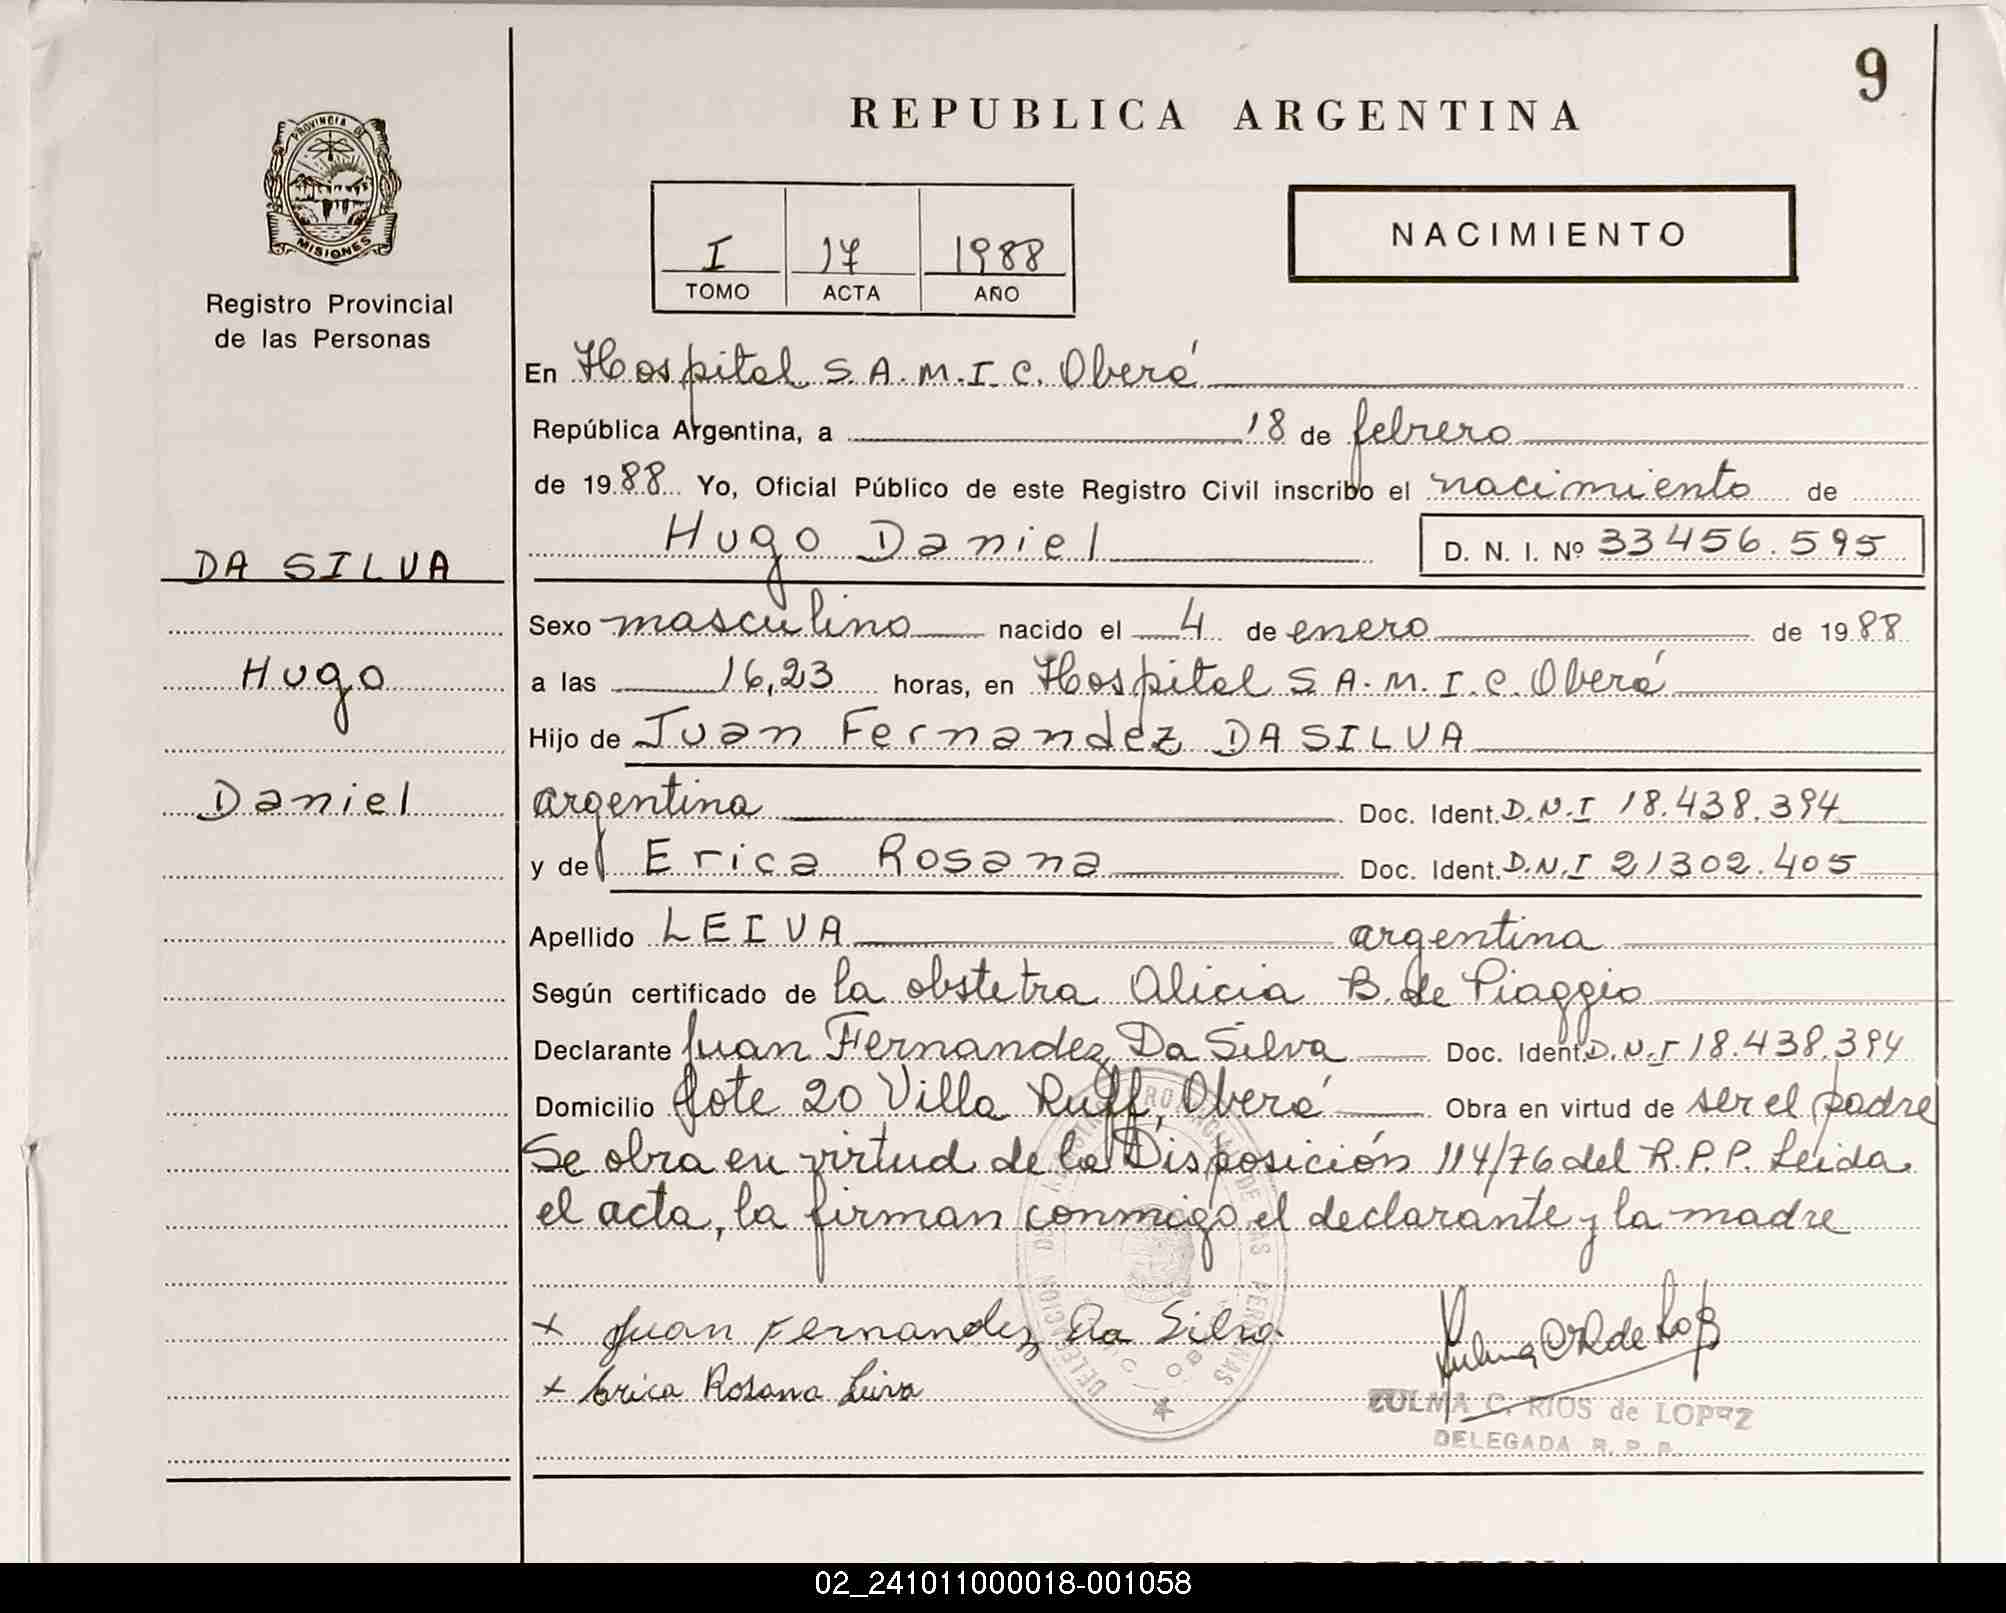 9
REPUBLICA ARGENTINA
PROVINCIA DE
MISIONES
Registro Provincial
de las Personas
I 17 1988
TOMO ACTA AÑO
NACIMIENTO
En Hospital S.A.M.I.C. Oberá
República Argentina, a 18 de febrero
de 1988 Yo, Oficial Público de este Registro Civil inscribo el nacimiento de
Hugo Daniel D. N. I. Nº 33456.595
DA SILVA
Hugo
Daniel
Sexo masculino nacido el 4 de enero de 1988
a las 16,23 horas, en Hospital S.A.M.I.C. Oberá
Hijo de Juan Fernandez DA SILVA
argentina Doc. Ident. D.N.I 18.438.394
y de Erica Rosana Doc. Ident. D.N.I 21302.405
Apellido LEIVA argentina
Según certificado de la obstetra Alicia B. de Piaggio
Declarante Juan Fernandez Da Silva Doc. Ident. D.N.I 18.438.394
Domicilio Lote 20 Villa Ruff, Oberá Obra en virtud de ser el padre
Se obra en virtud de la Disposición 114/76 del R.P.P. Leida
el acta, la firman conmigo el declarante y la madre
+ Juan Fernandez Da Silva
+ Erica Rosana Leiva
ZULMA C. RIOS de LOPEZ
DELEGADA R. P. P.
02_241011000018-001058